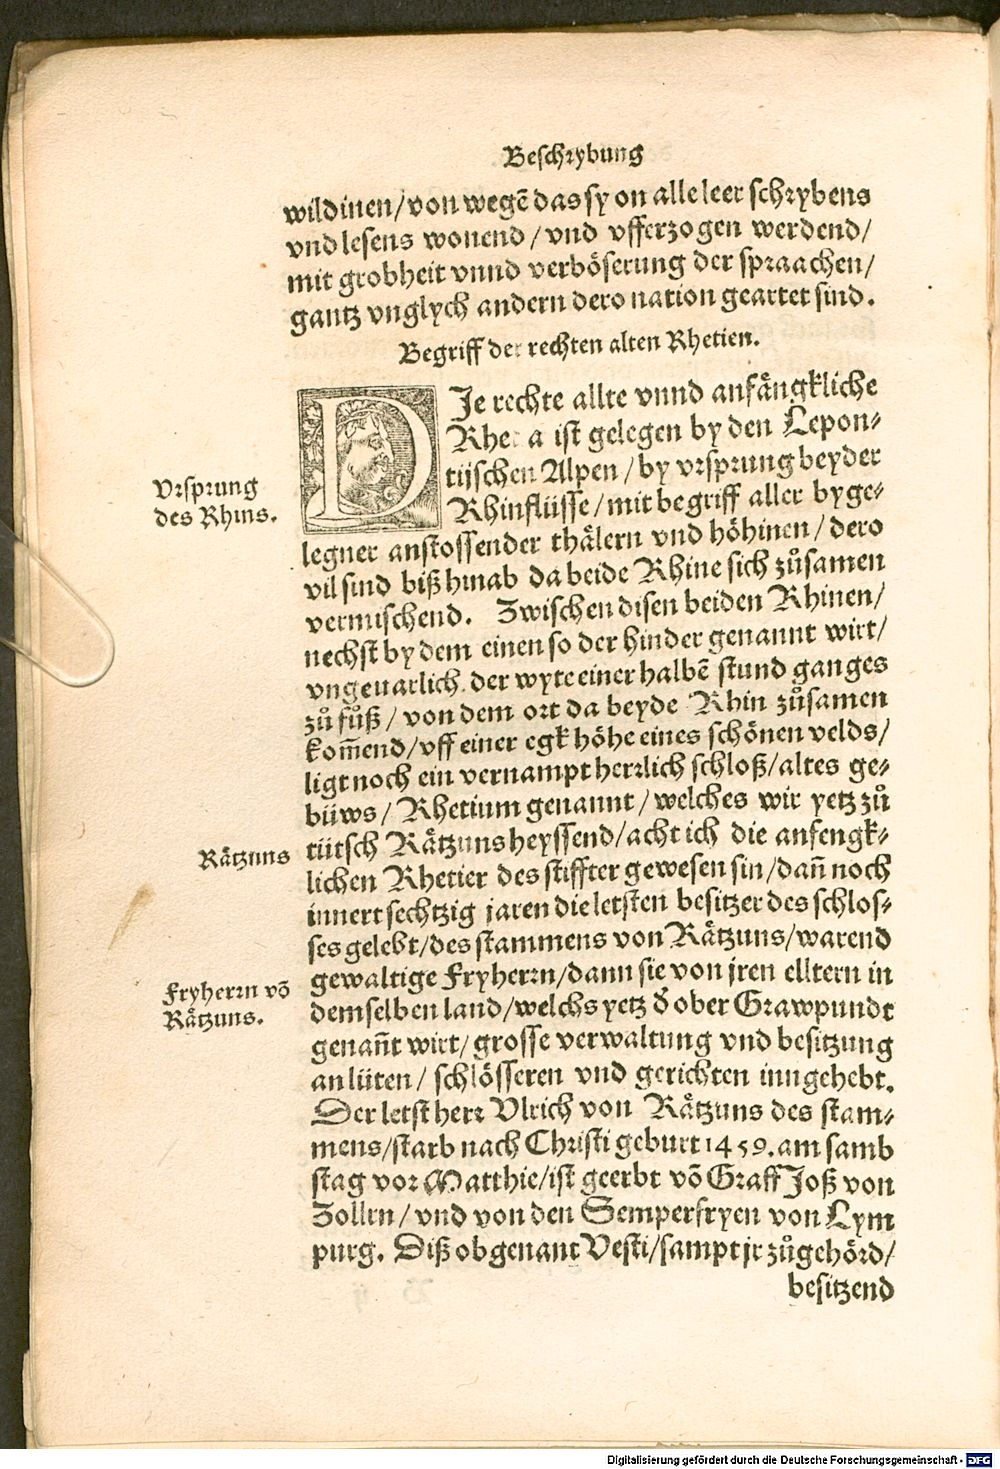 Beschrybung
wildinen/von wegē das sy on alle leer schrybens
vnd lesens wonend/vnd vfferzogen werdend/
mit grobheit vnnd verböserung der spraachen/
gantz vnglych andern dero nation geartet sind.
Begriff der rechten alten Rhetien.
DJe rechte allte vnnd anfängkliche
Rhetia ist gelegen by den Lepon⸗
tijschen Alpen/by vrsprung beyder
Vrsprung
des Rhins.
Rhinflüsse/mit begriff aller byge⸗
legner anstossender thälern vnd höhinen/dero
vil sind biß hinab da beide Rhine sich zůsamen
vermischend. Zwischen disen beiden Rhinen/
nechst by dem einen so der hinder genannt wirt/
vngeuarlich der wyte einer halbē stund ganges
zů fůß/von dem ort da beyde Rhin zůsamen
kom̄end/vff einer egk höhe eines schönen velds/
ligt noch ein vernampt herrlich schloß/altes ge⸗
büws/Rhetium genannt/welches wir yetz zů
Rätzuns
tütsch Rätzuns heyssend/acht ich die anfengk⸗
lichen Rhetier des stiffter gewesen sin/dan̄ noch
innert sechtzig jaren die letsten besitzer des schlos⸗
ses gelebt/des stammens von Rätzuns/warend
Fryherrn vō
Rätzuns.
gewaltige Fryherrn/dann sie von jren elltern in
demselben land/welchs yetz d̓ ober Grawpundt
genan̄t wirt/grosse verwaltung vnd besitzung
an lüten/schlösseren vnd gerichten inngehebt.
Der letst herr Vlrich von Rätzuns des stam⸗
mens/starb nach Christi geburt 1459. am samb
stag vor Matthie/ist geerbt vō Graff Joß von
Zollrn/vnd von den Semperfryen von Lym
purg. Diß obgenant Vesti/sampt jr zůgehörd/
besitzend
Digitalisierung gefördert durch die Deutsche Forschungsgemeinschaft - DFG